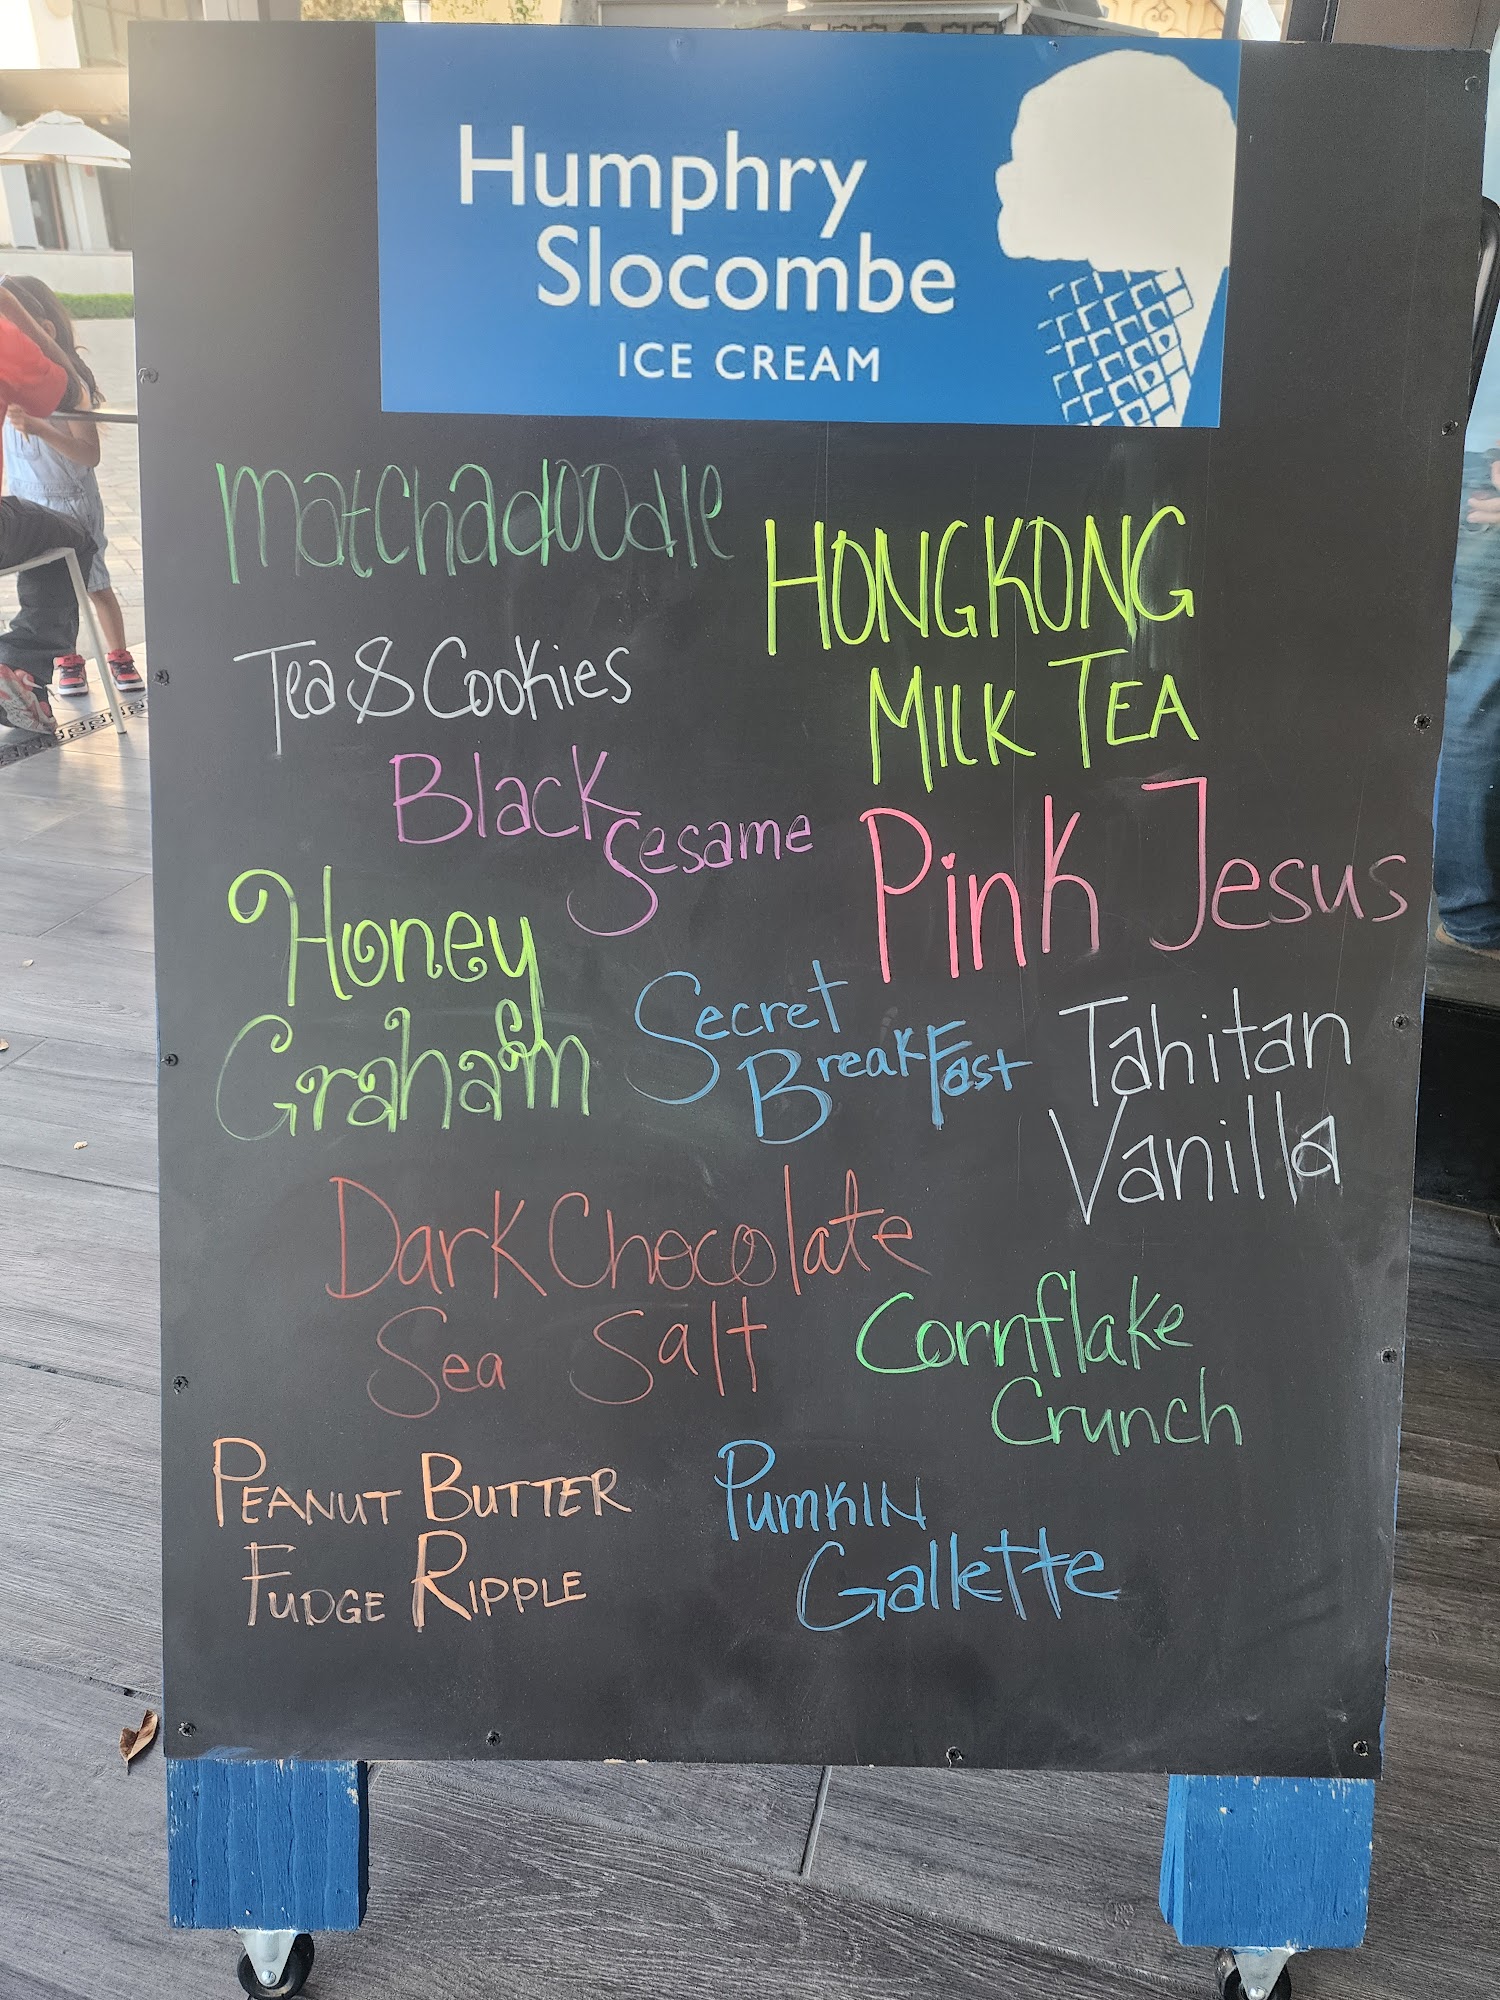 Humphry
Slocombe
ICE CREAM
matchadoodle
HONGKONG
MILK TEA
Tea & Cookies
Black
Sesame
Pink Jesus
Honey
Graham
Secret
Breakfast
Tahitan
Vanilla
Dark Chocolate
Sea Salt
Cornflake
Crunch
PEANUT BUTTER
FUDGE RIPPLE
PUMKIN
Gallette